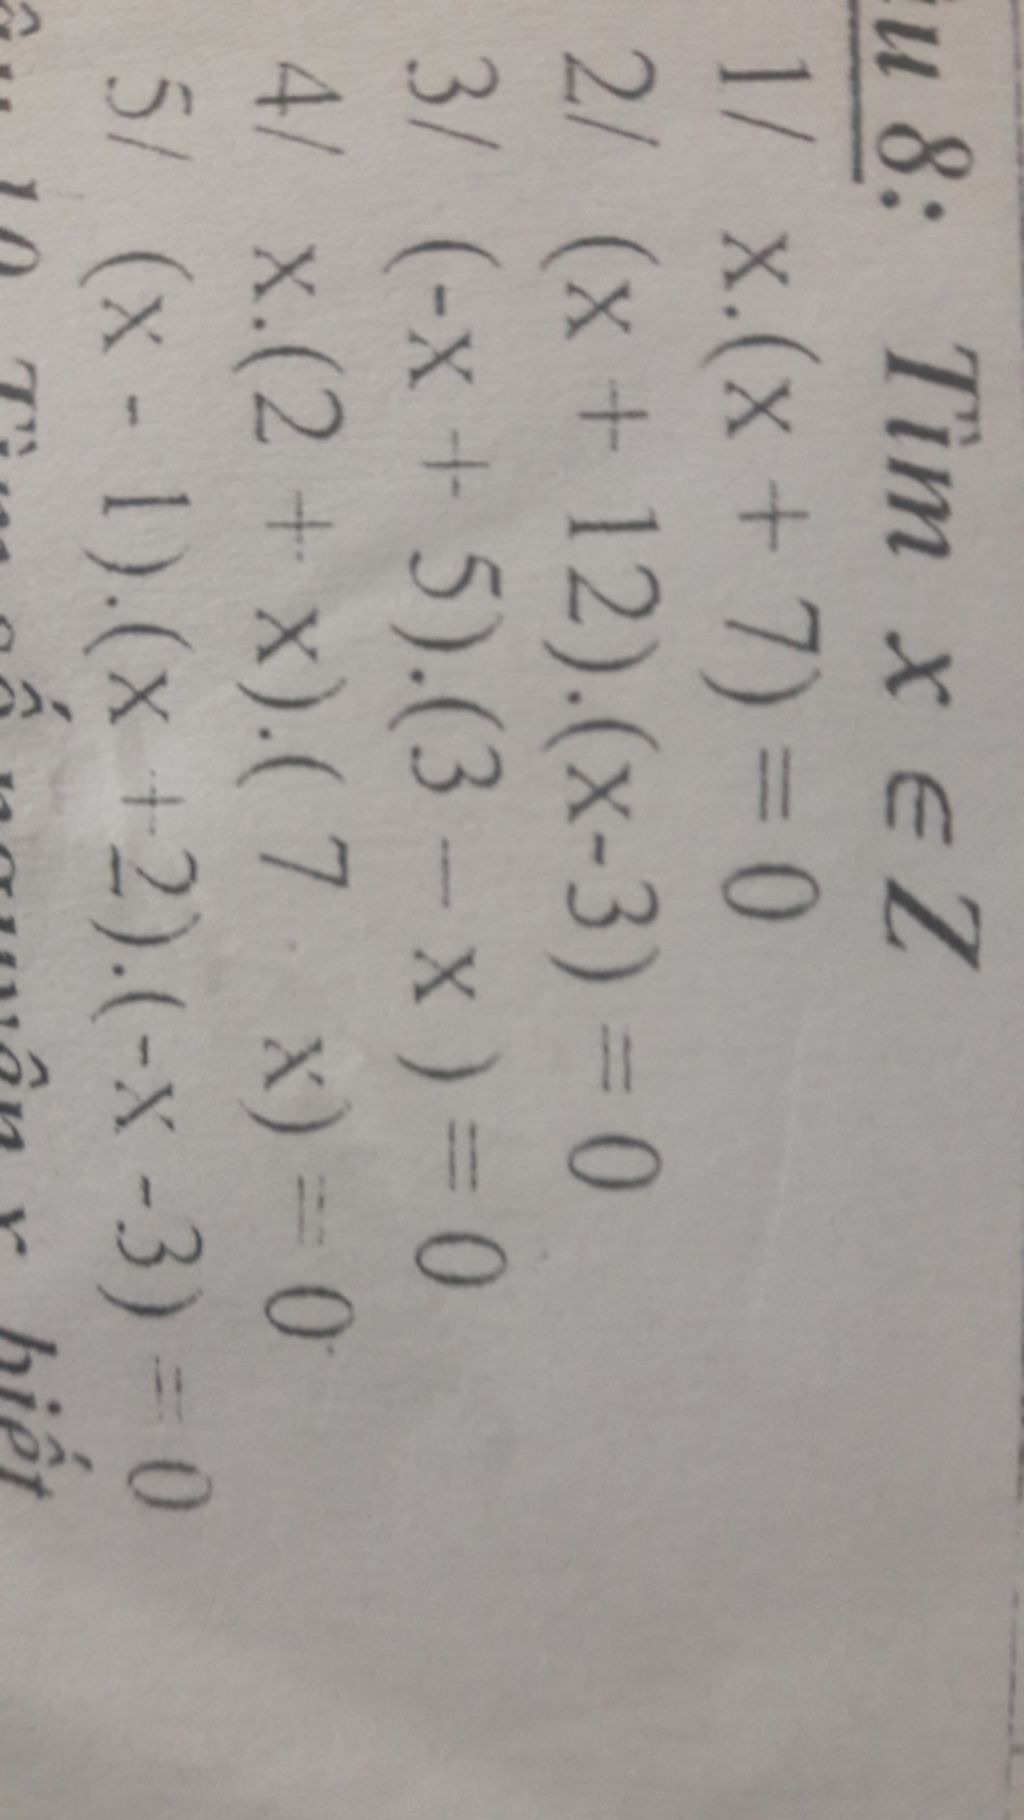 8: Tìm x ∈ Z
1/ x.(x + 7) = 0
2/ (x + 12).(x-3) = 0
3/ (-x + 5).(3 – x ) = 0
4/ x.(2 + x).( 7 x) = 0
5/ (x - 1).(x +2).(-x -3) = 0
10 Tìm số nguyên x biết